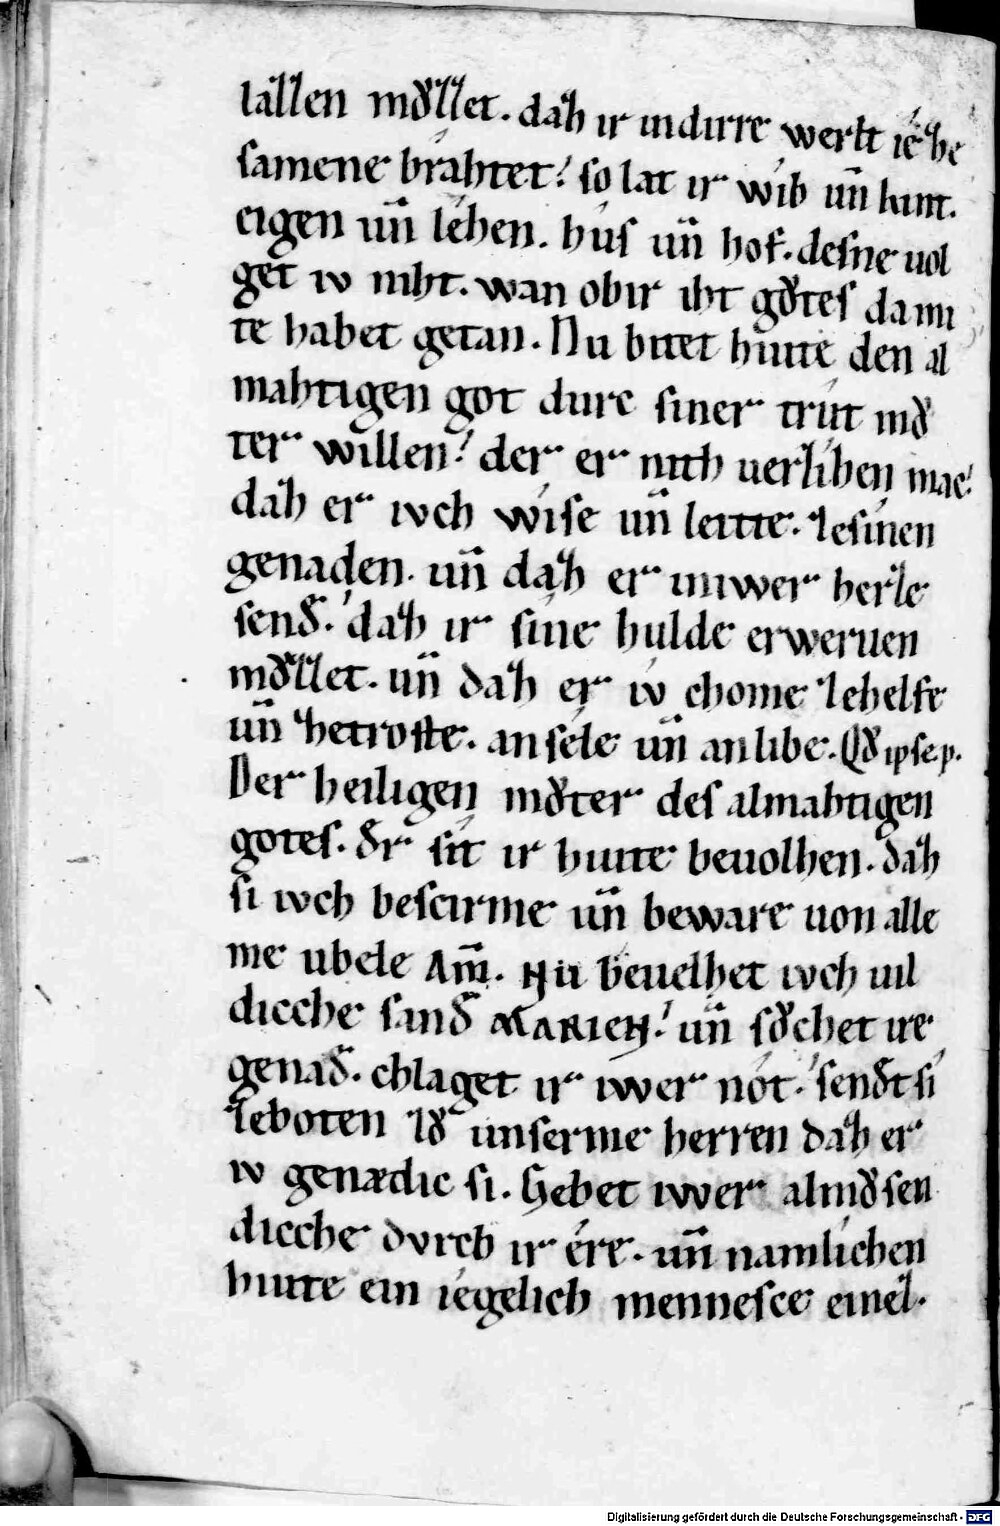 lazzen mv̊zzet. daz ir indirre werlt ie ze
samene brahtet. so lat ir wib un̄ kint.
eigen un̄ lehen. hus un̄ hof. desne uol
get iv niht. wan obir iht gv̊tes da mi
te habet getan. Nu bitet hiute den al
mahtigen got durc siner trut mv̊
ter willen. der er nith uerzihen mac.
daz er ivch wise un̄ leitte. zesinen
genaden. un̄ daz er iniwer herze
send̄. daz ir sine hulde erweruen
mv̊zzet. un̄ daz er iv chome zehelfe
un̄ zetroste. an sele un̄ an libe. Qd̄ ipse p.
Der heiligen mv̊ter des almahtigen
gotes. d̄r sit ir hiute beuolhen. daz
si ivch bescirme un̄ beware uon alle
me ubele Am̄. Nu beuelhet ivch uil
dicche sand̄ MARIEN. un̄ sv̊chet ire
genad̄. chlaget ir iwer not. send̄t si
zeboten zv̊ unserme herren daz er
iv genædic si. Gebet iwer almv̊sen
dicche dvrch ir ere. un̄ namlichen
hiute ein iegelich mennesce einez.
Digitalisierung gefördert durch die Deutsche Forschungsgemeinschaft - DFG